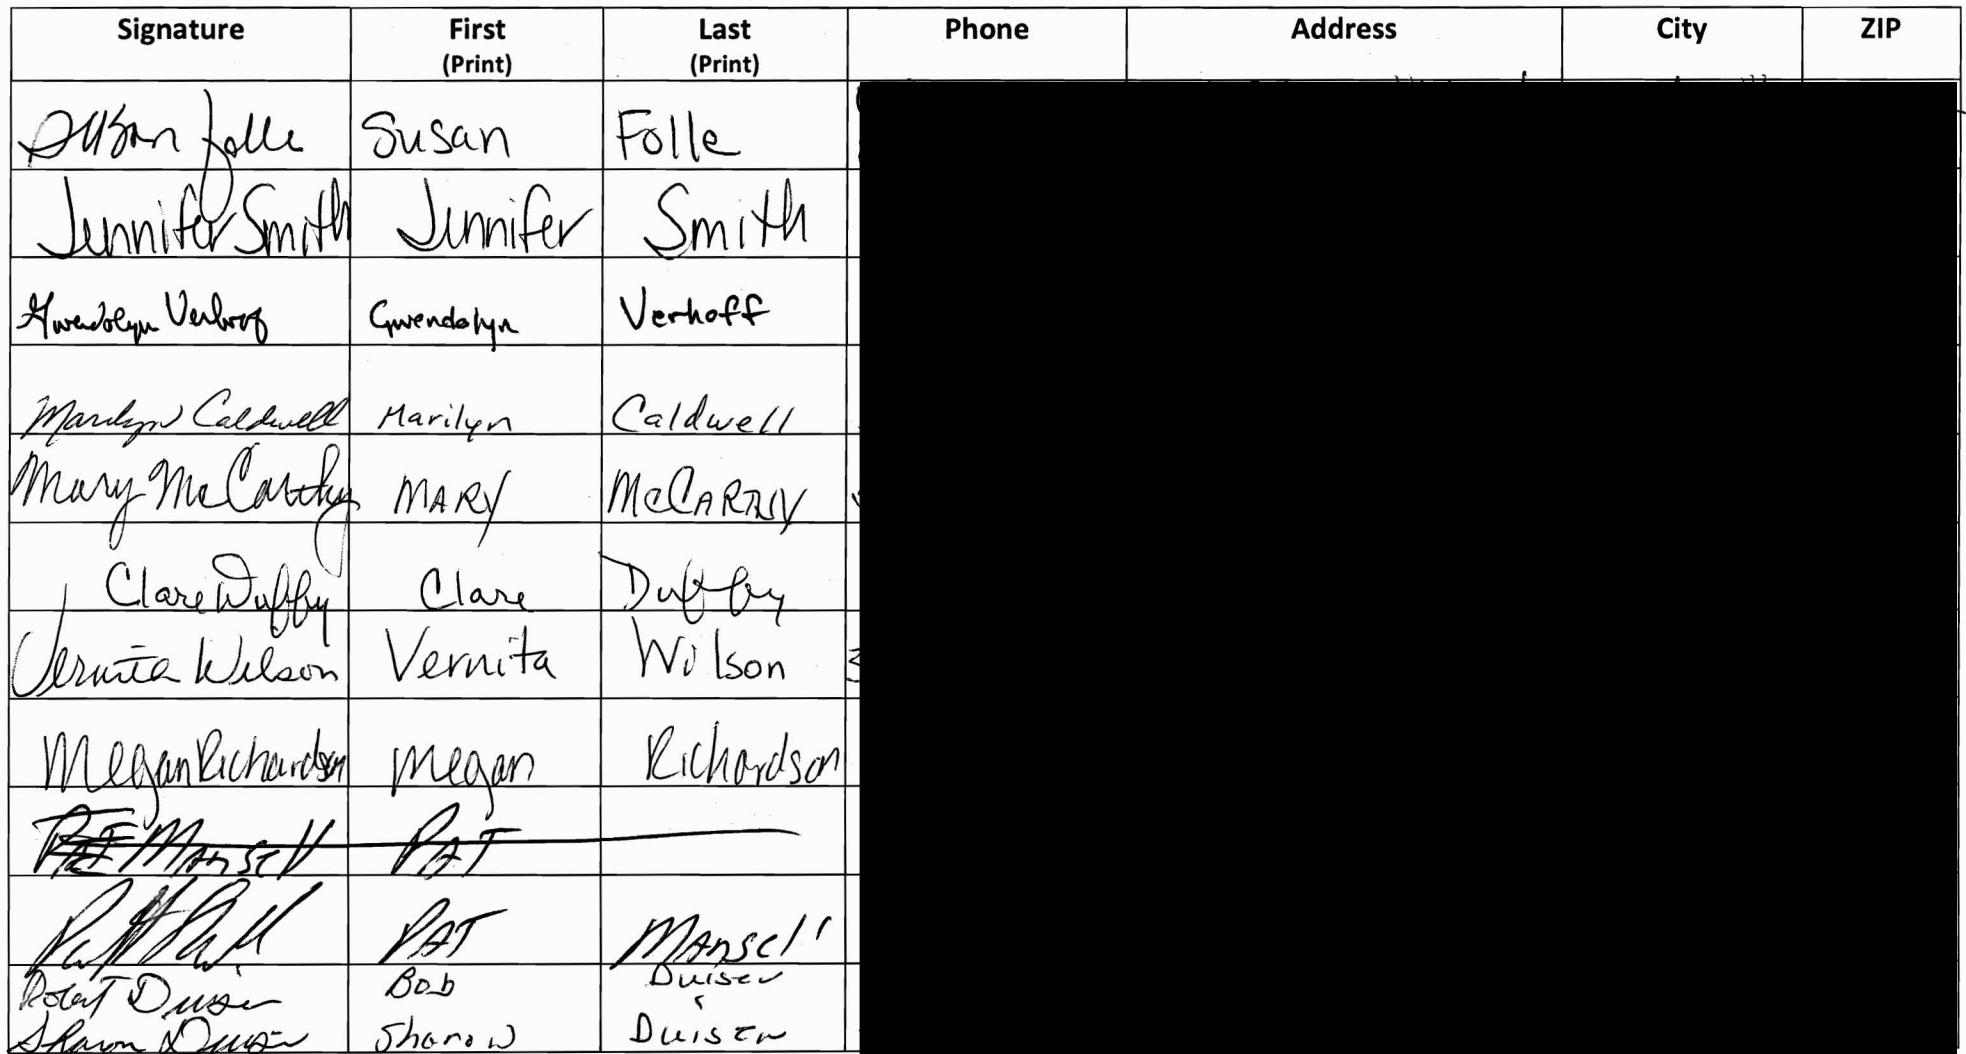 Signature First (Print) Last (Print) Phone Address City ZIP
Susan Folle Susan Folle
Jennifer Smith Jennifer Smith
Gwendolyn Verhoff Gwendolyn Verhoff
Marilyn Caldwell Marilyn Caldwell
Mary McCarthy MARY McCARTHY
Clare Duffy Clare Duffy
Vernita Wilson Vernita Wilson
Megan Richardson Megan Richardson
PAT Mansell PAT
PAT Mansell
Robert Duisen Bob Duisen
Sharon Duisen Sharon Duisen